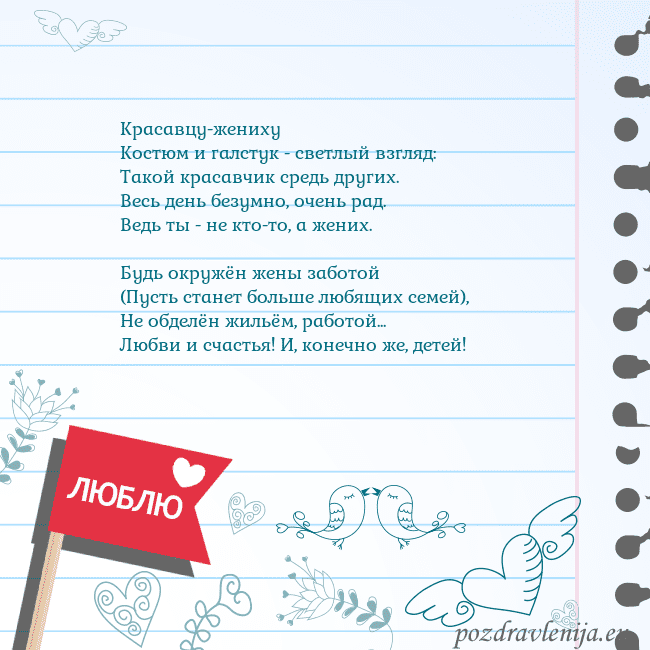 Красавцу-жениху
Костюм и галстук - светлый взгляд:
Такой красавчик средь других.
Весь день безумно, очень рад.
Ведь ты - не кто-то, а жених.
Будь окружён жены заботой
(Пусть станет больше любящих семей),
Не обделён жильём, работой...
Любви и счастья! И, конечно же, детей!
ЛЮБЛЮ
pozdravlenija.eu